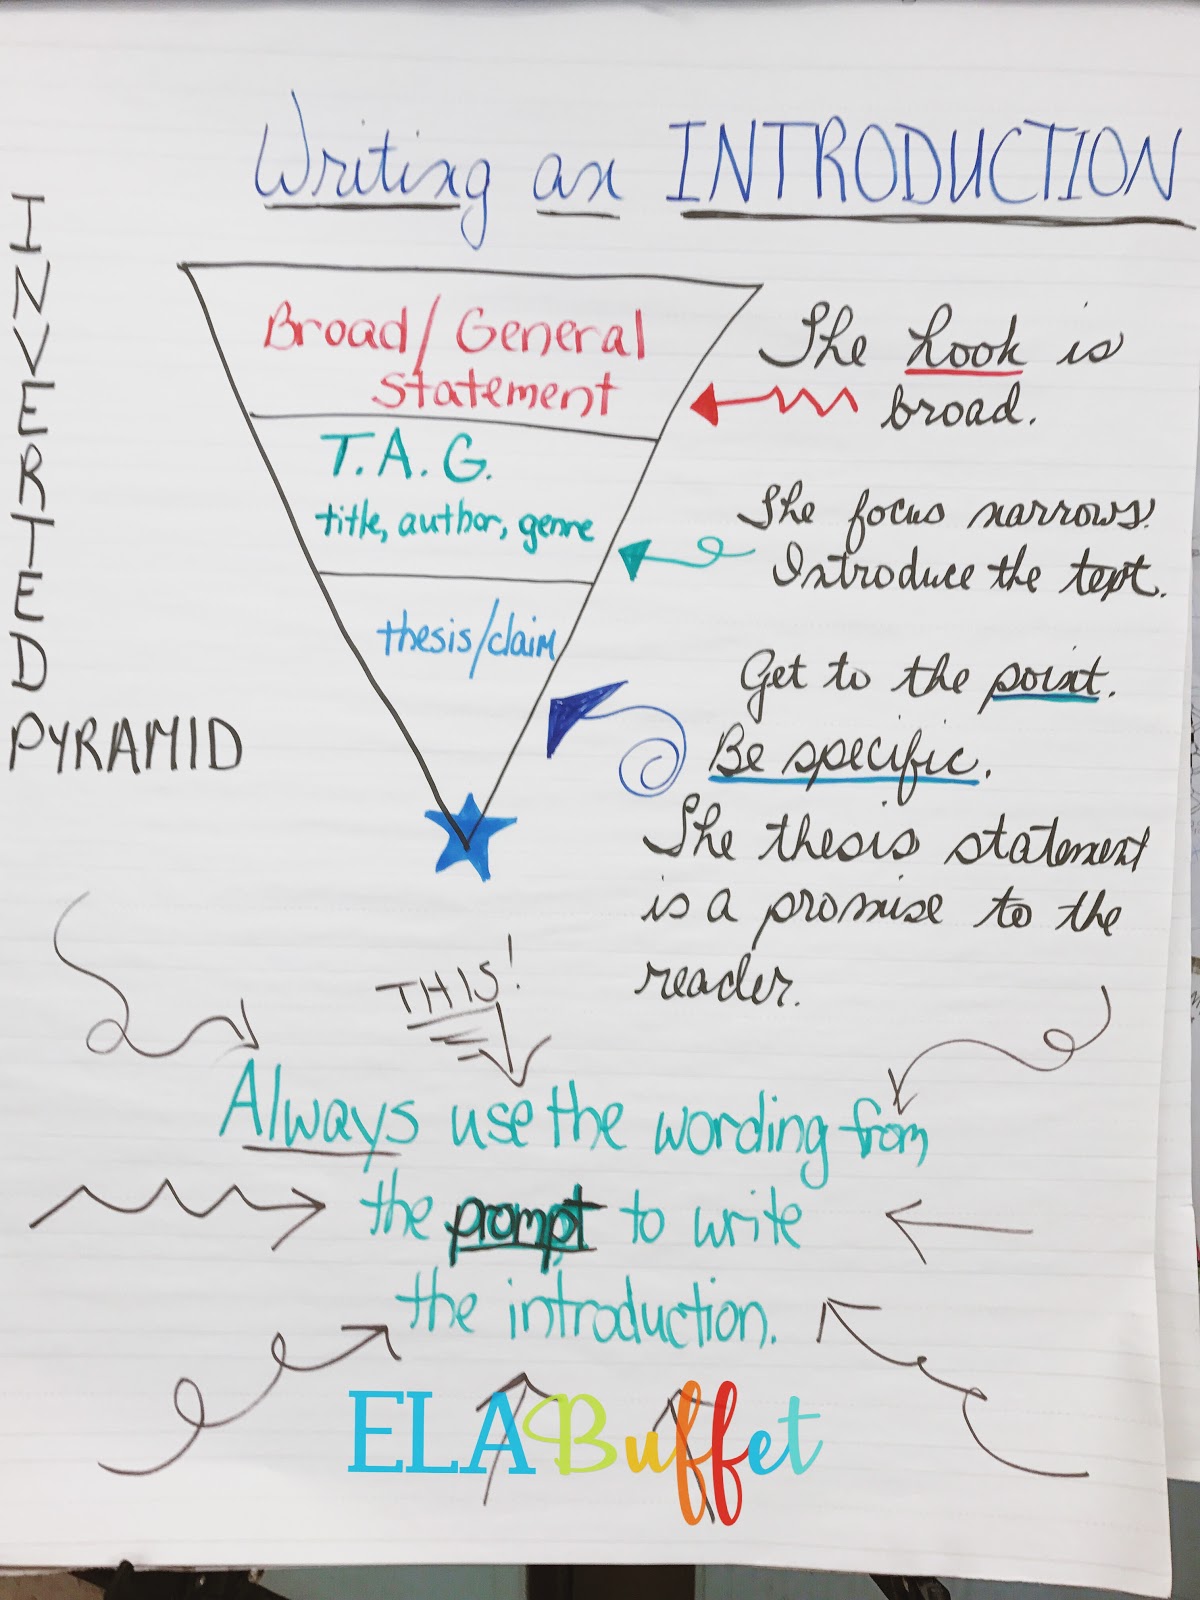 Writing an INTRODUCTION
INVERTED
PYRAMID
Broad/General
statement
The hook is
broad.
T.A.G.
title, author, genre
The focus narrows.
Introduce the text.
thesis/claim
Get to the point.
Be specific.
The thesis statement
is a promise to the
reader.
THIS!
Always use the wording from
the prompt to write
the introduction.
ELA Buffet